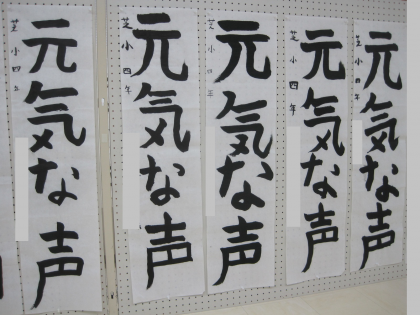 元気な声
芝小四年
元気な声
芝小四年
元気な声
芝小四年
元気な声
芝小四年
元気な声
芝小四年